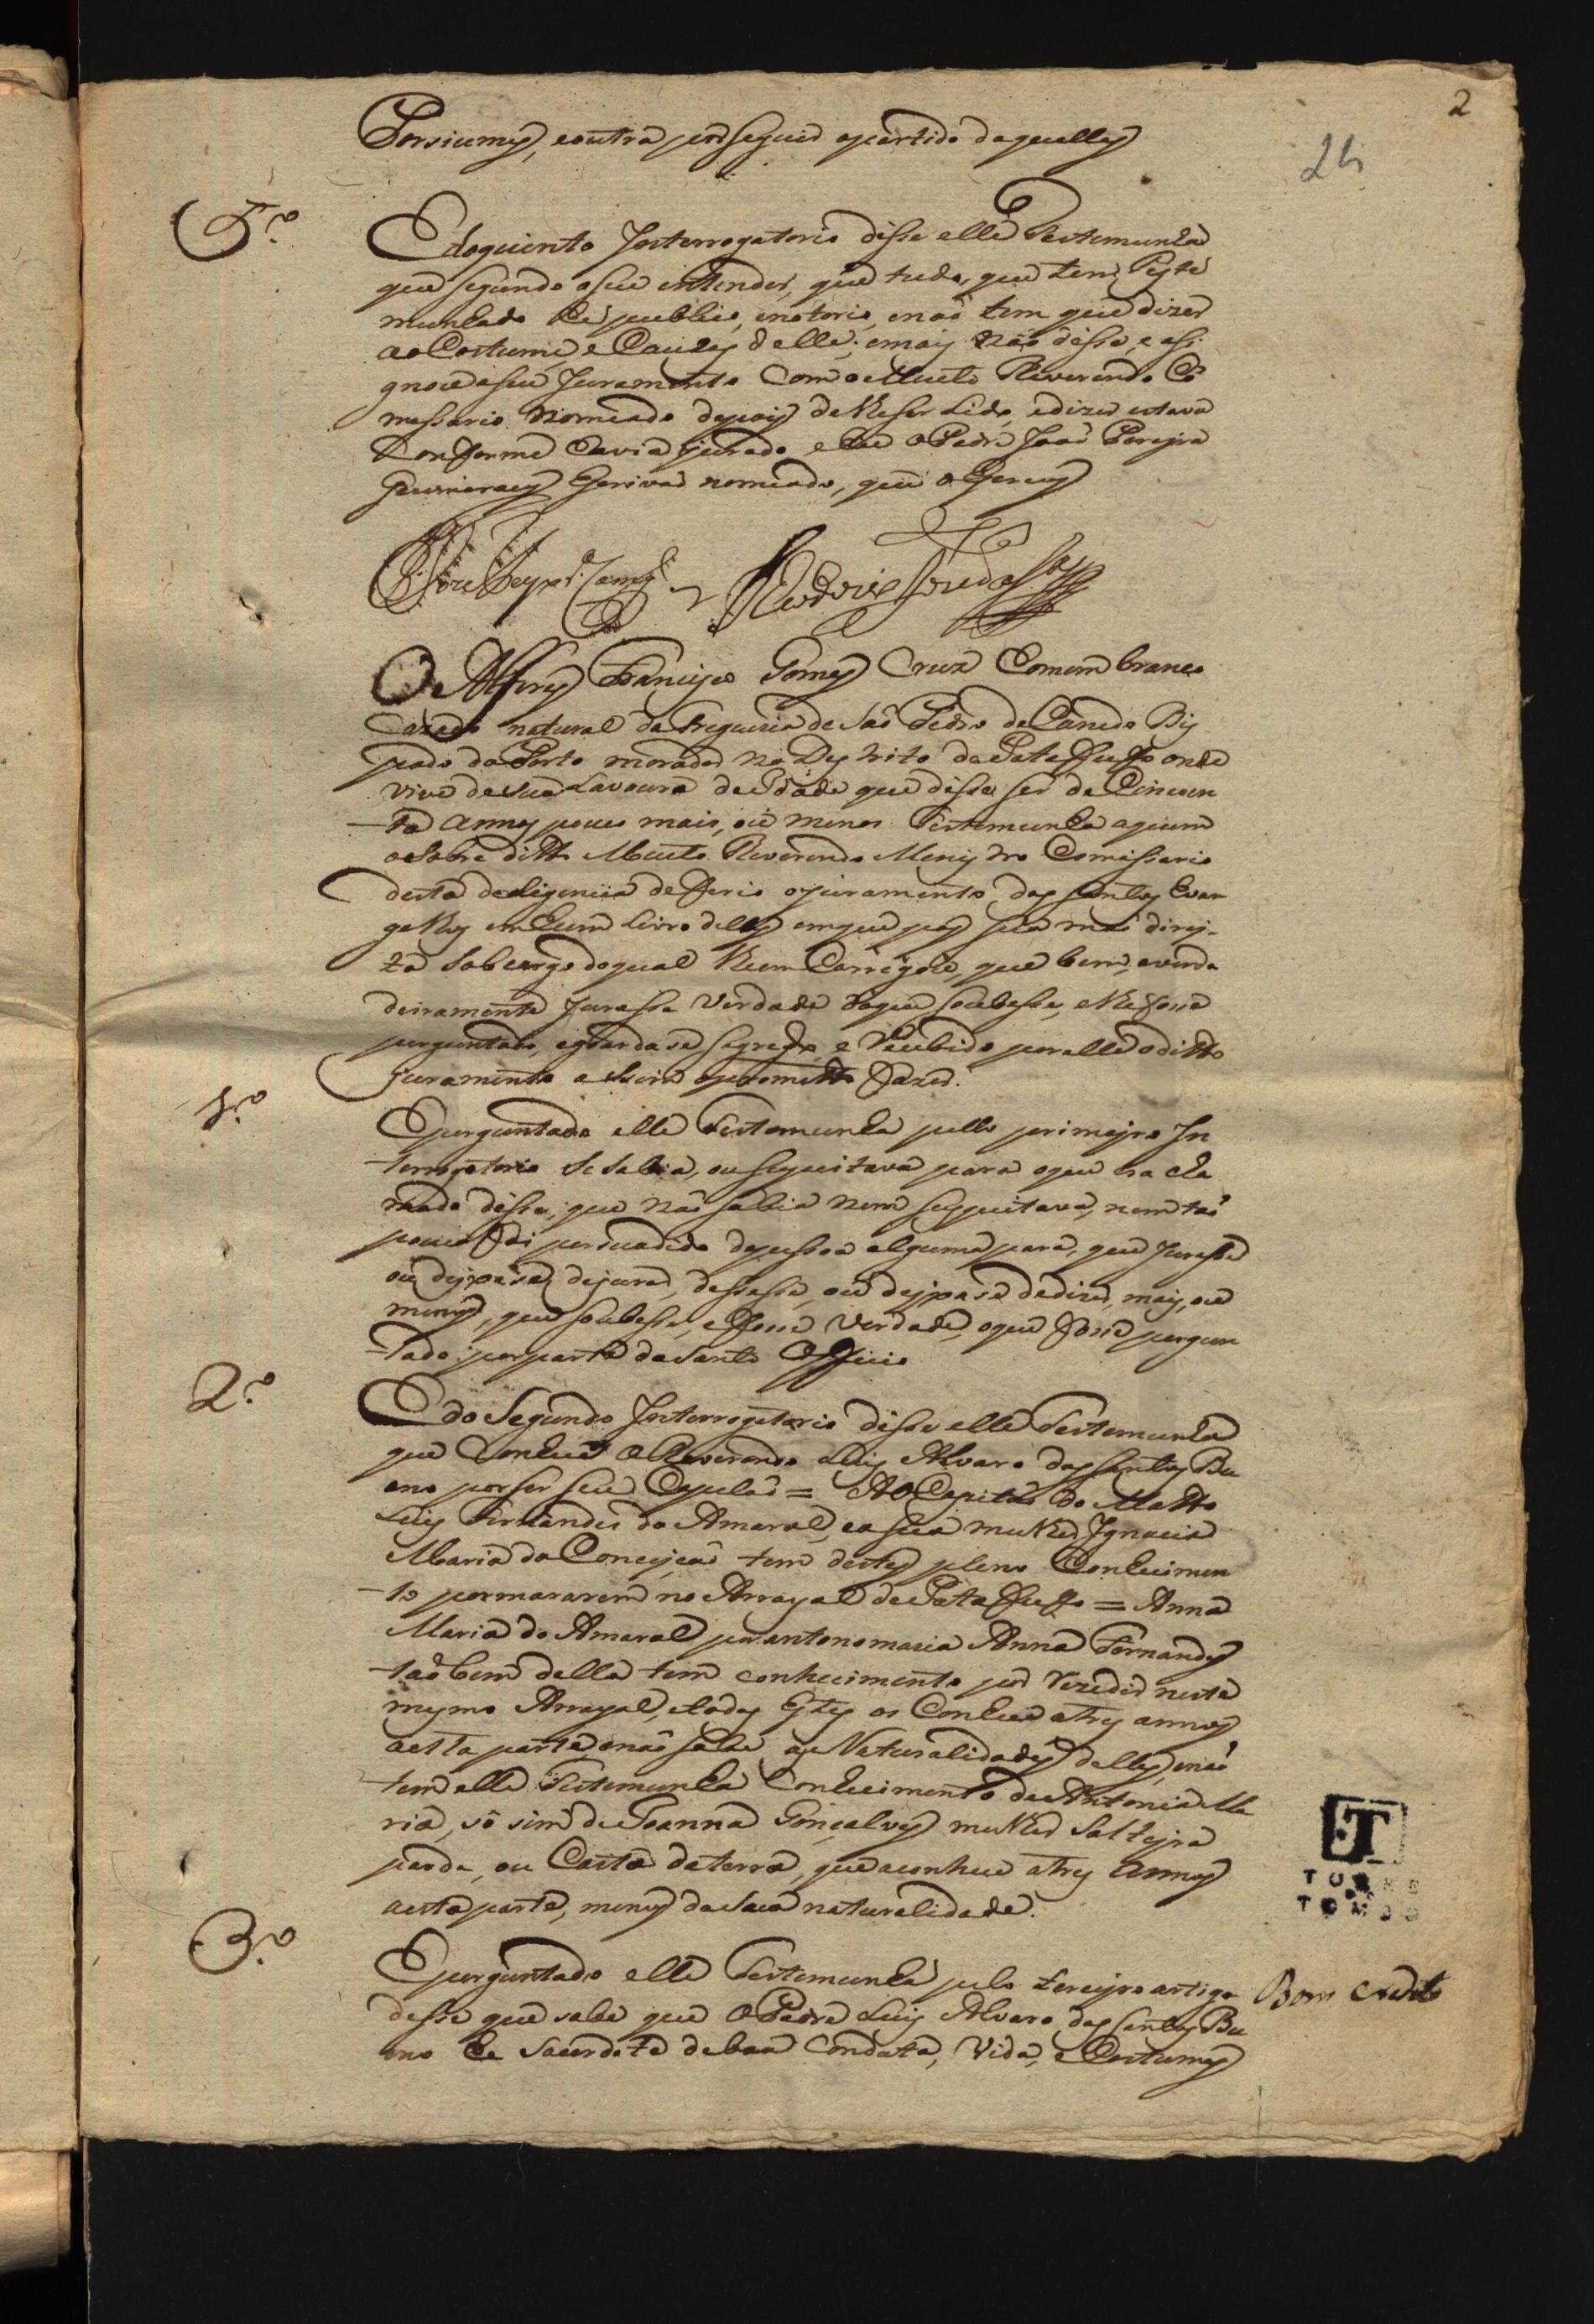 2
24
Porsiumes, e outra por seguir o partido daquelles
5.º
E do quinto Interrogatorio disse elle Testemunha
que segundo o seu entender, que tudo, que tem teste
munhado he publico, e notorio, e naõ tem que dizer
ao Costume, e Couzas delle; e mais naõ disse, e asi
gnou o seu Juramento com o Muito Reverendo Co
messario nomeado depois de lhe ser lido, e dizer estava
Conforme havia jurado e eu o Padre Joaõ Pereyra
Guimaraes Escrivaõ nomeado, que o Escrevy
O Alferes Francisco Gomes Cruz homem branco
Cazado natural da Freguezia de Saõ Pedro de Canedo Bis
pado do Porto morador no Destrito da Pataffuffo onde
vive de sua Lavoura de Idade que disse ser de Cincoen
ta annos pouco mais, ou menos Testemunha a quem
o sobre ditto Muito Reverendo Menistro Comissario
desta deligencia deferio o juramento dos santos Evan
gelhos em hum Livro delles em que pos sua maõ direy-
ta sob cargo do qual lhe em Carregou, que bem, e verda
deiramente Jurasse verdade do que soubesse, e lhe fosse
perguntado, e guardase segredo e Recebido por elle o ditto
juramento assim o prometto fazer.
1.º
E perguntado elle Testemunha pello primeyro In
terrogatorio se sabia, ou suspeitava para o que era cha
mado disse, que naõ sabia nem suspeitava, nem taõ
pouco foi persuadido de pessoa alguma para, que Jurasse
ou deyxase de jurar, dissesse, ou deyxase de dizer, mais, ou
menos, que soubesse, e fosse verdade, o que fosse pergun
tado por parte do Santo Officio
2.º
E do Segundo Interrogatorio disse elle Testemunha
que Conhece O Reverendo Luis Alvaro dos santos Bu
eno por ser seu Capelaõ = Ao Capitaõ do Matto
Luis Fernandes do Amaral, e a sua mulher Ignacia
Maria da Conceyçaõ tem destes pleno Conhecimen
to por morarem no Arrayal de Pataffuffo = Anna
Maria do Amaral por antonomasia Anna Fernandes
taõ bem della tem conhecimento por Rezedir neste
mesmo Arrayal, e todos Estes os Conhece a tres annos
a esta parte, e naõ sabe as Naturalidades delles, e naõ
tem elle Testemunha Conhecimento de Antonia Ma
ria, só sim de Joanna Gonçalves mulher Solteyra
parda, ou Casta da terra, que a conhece a tres annos
a esta parte, menos da sua naturalidade.
3.º
E perguntado elle Testemunha pelo terceyro artigo
disse que sabe que O Padre Luis Alvaro dos santos Bu
eno he sacerdote de boa Conduta, Vida, e Costumes
Bom credito
TT
TORRE
DO
TOMBO